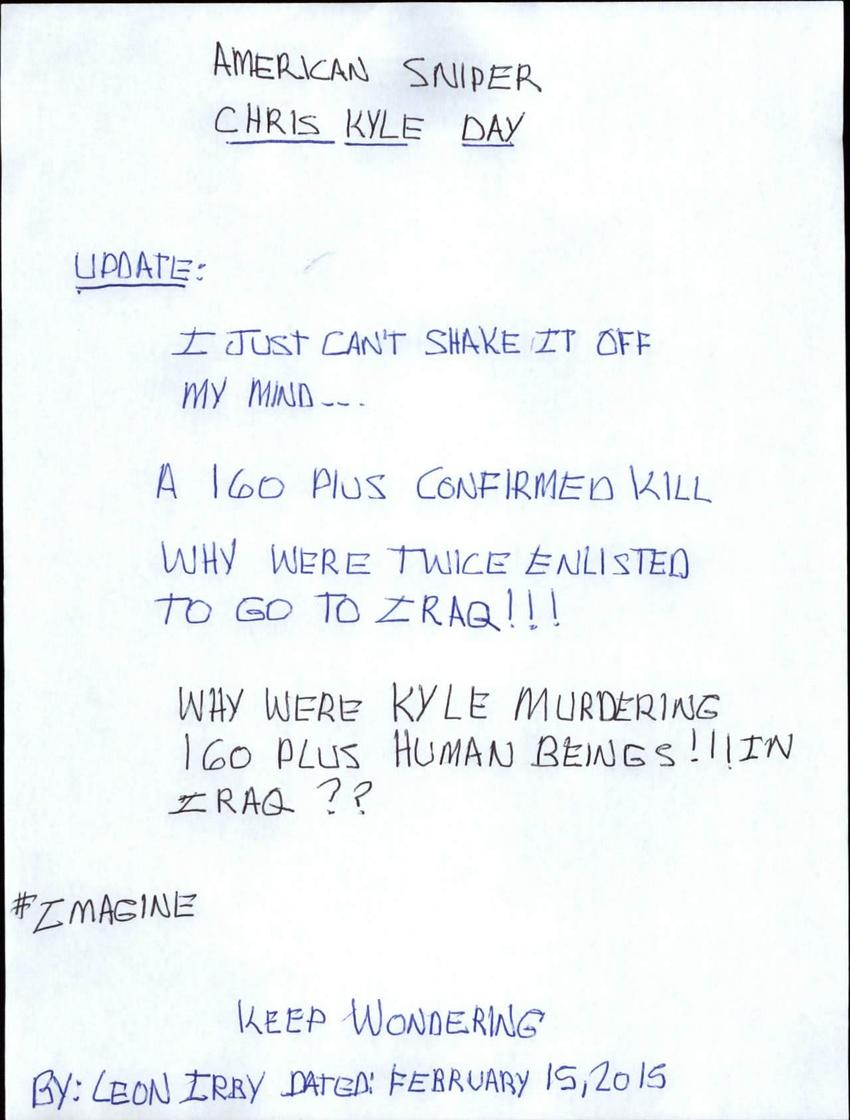 AMERICAN SNIPER
CHRIS KYLE DAY
UPDATE:
I JUST CAN'T SHAKE IT OFF
MY MIND....
A 160 PLUS CONFIRMED KILL
WHY WERE TWICE ENLISTED
TO GO TO IRAQ!!!
WHY WERE KYLE MURDERING
160 PLUS HUMAN BEINGS!!!IN
IRAQ ??
#IMAGINE
KEEP WONDERING
BY: LEON IRBY DATED: FEBRUARY 15,2015